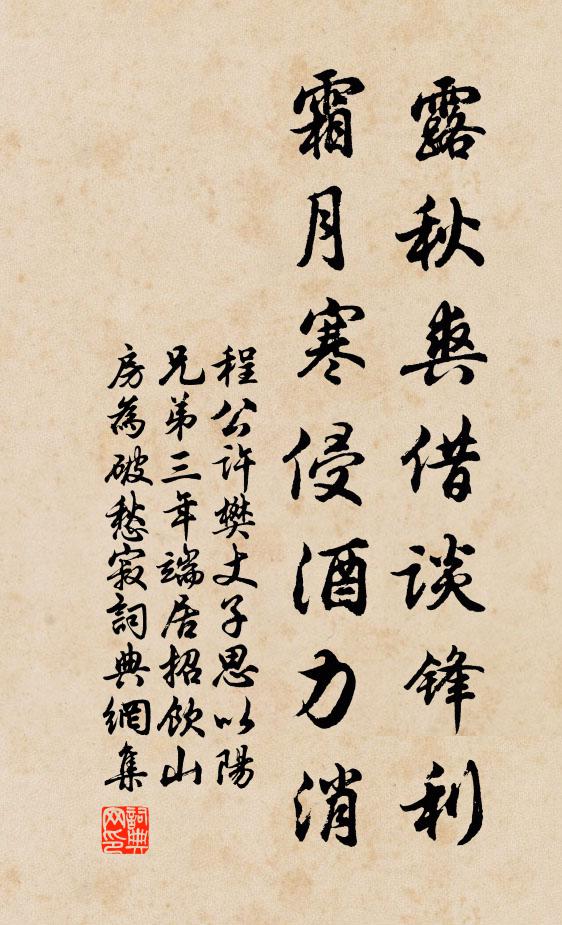 露秋爽借谈锋利
霜月寒侵酒力消
程公许樊丈子思以陽
兄弟三年端居招飲山
房為破愁寂詞典網集
詞典
网印